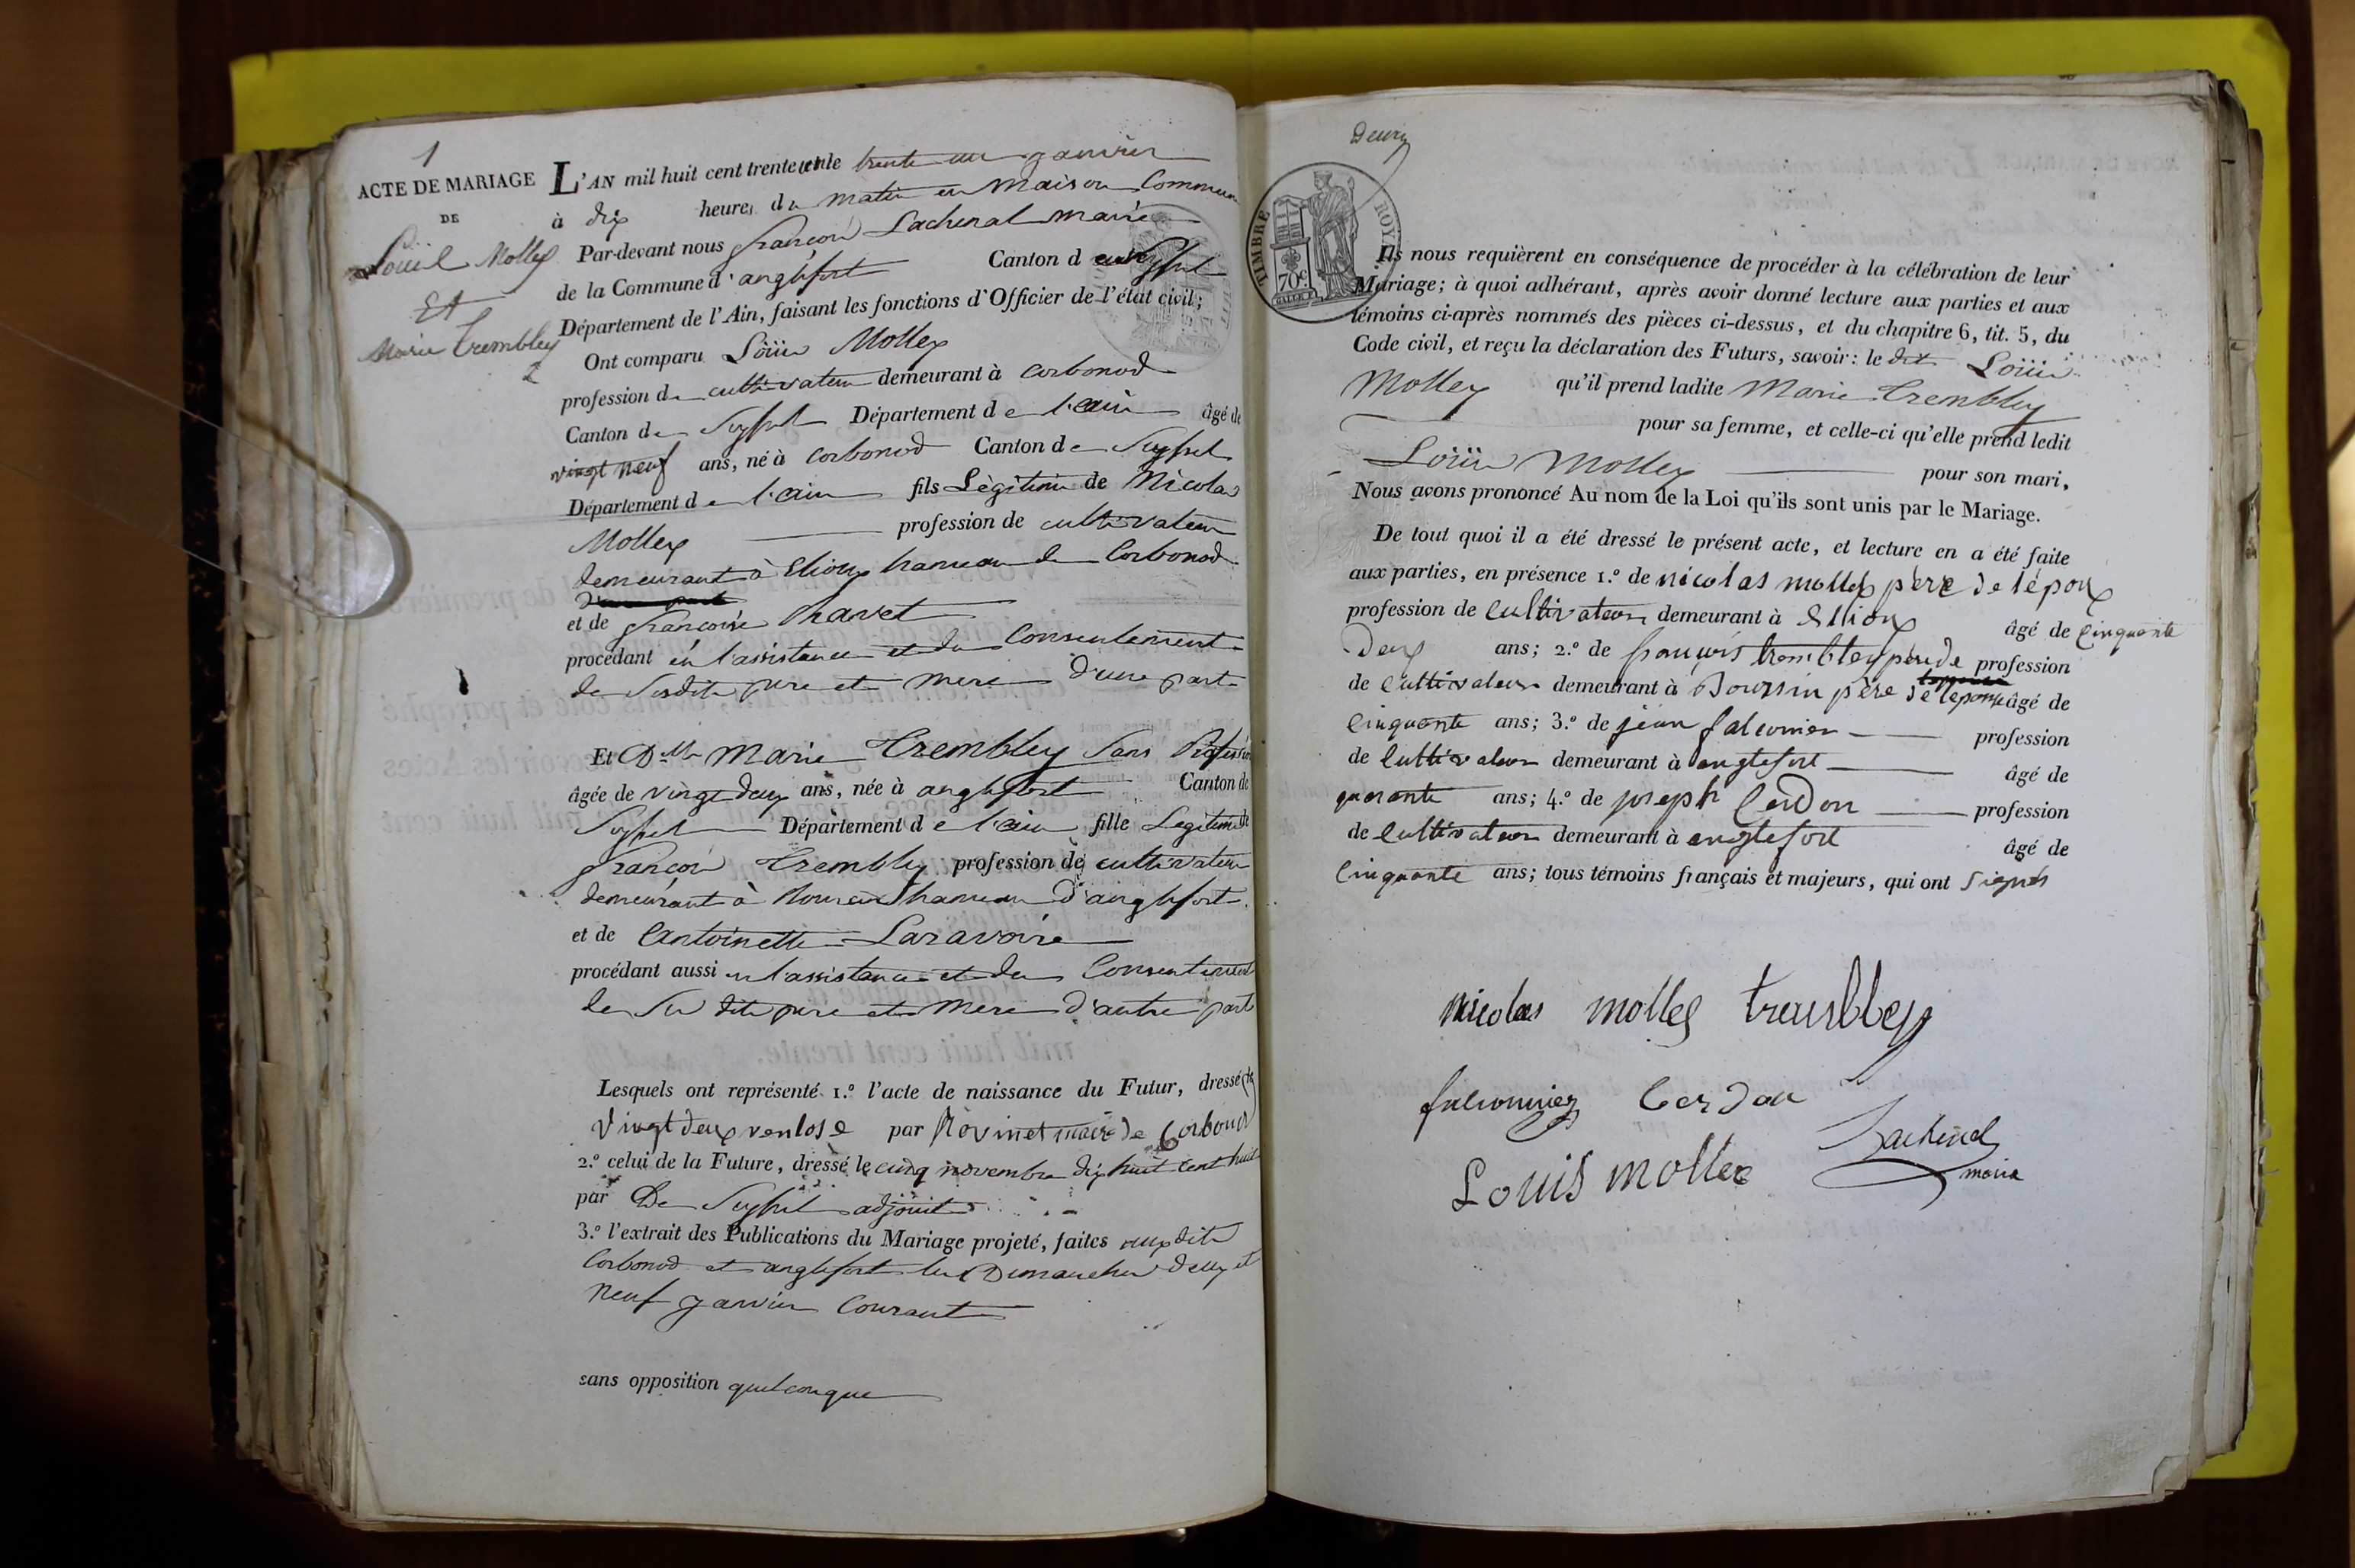 1
ACTE DE MARIAGE
DE
Loüis Mollex
Et
Marie Trembley
L'AN mil huit cent trente et un le trente un janvier
à dix heures du matin en Maison Commune
Par-devant nous françois Lachenal Maire
de la Commune d'anglefort Canton de Seyssel
Département de l'Ain, faisant les fonctions d'Officier de l'état civil;
Ont comparu Loüis Mollex
profession de cultivateur demeurant à Corbonod
Canton de Seyssel Département de l'ain âgé de
vingt neuf ans, né à Corbonod Canton de Seyssel
Département de l'ain fils Légitime de Nicolas
Mollex profession de cultivateur
demeurant à Elioux hameau de Corbonod
d'une part
et de françoise Chavet
procédant en l'assistance et du Consentement
de Sesdits pere et mere d'une part
Et Dlle Marie Trembley Sans Profession
âgée de vingt deux ans, née à anglefort Canton de
Seyssel Département de l'ain fille Legitime de
françois Trembley profession de cultivateur
demeurant à hameau d'anglefort
et de Antoinette Laravoire
procédant aussi en l'assistance et du Consentement
de Ses dits pere et mere d'autre part
Lesquels ont représenté 1.º l'acte de naissance du Futur, dressé le
vingt deux ventose par Rovinet maire de Corbonod
2.º celui de la Future, dressé le cinq novembre dix huit cent huit
par De Seyssel adjoint
3.º l'extrait des Publications du Mariage projeté, faites auxdits
Corbonod et anglefort les Dimanches deux et
neuf janvier Courant
sans opposition quelconque
Deux
TIMBRE ROYAL
70c.
Ils nous requièrent en conséquence de procéder à la célébration de leur
Mariage; à quoi adhérant, après avoir donné lecture aux parties et aux
témoins ci-après nommés des pièces ci-dessus, et du chapitre 6, tit. 5, du
Code civil, et reçu la déclaration des Futurs, savoir: le dit Loüis
Mollex qu'il prend ladite Marie Trembley
pour sa femme, et celle-ci qu'elle prend ledit
Loüis Mollex pour son mari,
Nous avons prononcé Au nom de la Loi qu'ils sont unis par le Mariage.
De tout quoi il a été dressé le présent acte, et lecture en a été faite
aux parties, en présence 1.º de nicolas mollex père de lépoux
profession de Cultivateur demeurant à Ellioux âgé de Cinquante
deux ans; 2.º de françois trembley père de profession
de Cultivateur demeurant à Boursin père de lepouse âgé de
Cinquante ans; 3.º de jean falconnier profession
de Cultivateur demeurant à anglefort âgé de
quarante ans; 4.º de joseph Cerdon profession
de Cultivateur demeurant à anglefort âgé de
Cinquante ans; tous témoins français et majeurs, qui ont signés
Nicolas mollex trembley
falconnier Cerdon
Lachenal
maire
Louis mollex